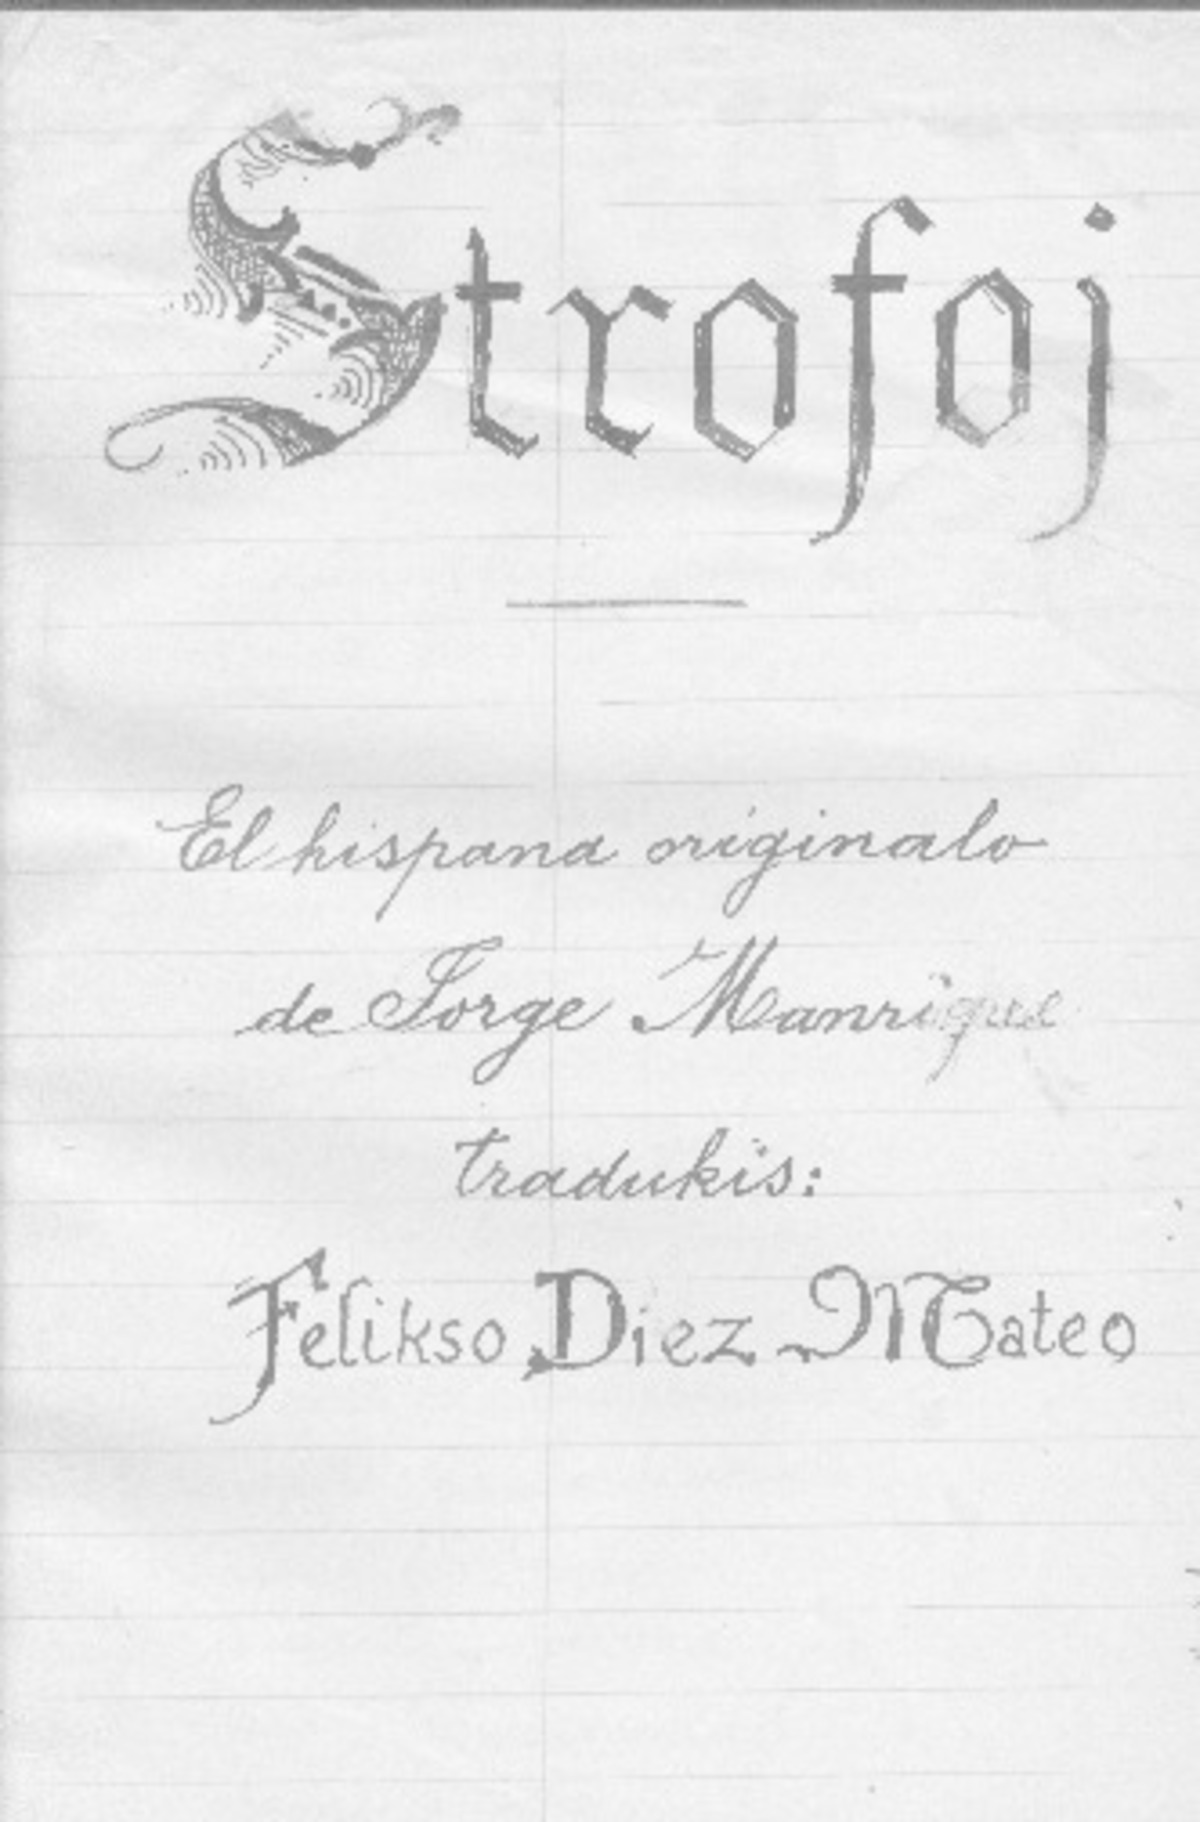 Strofoj
El hispana originalo
de Jorge Manrique
tradukis:
Felikso Diez Mateo